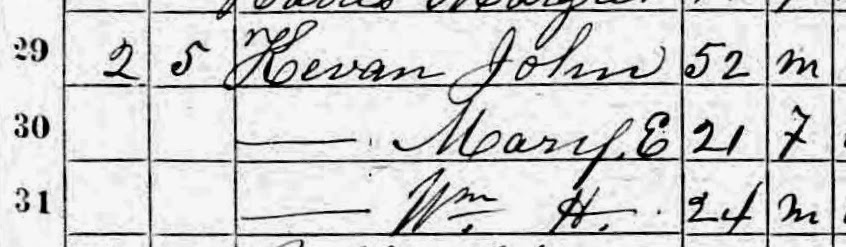 29 2 5 Kevan John 52 m
30 — Mary E 21 F
31 — Wm. H. 24 m